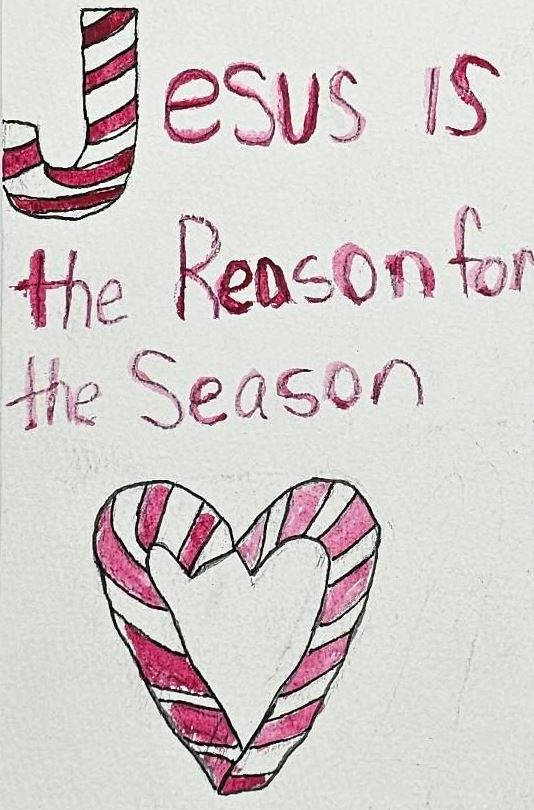 Jesus is
the Reason for
the Season